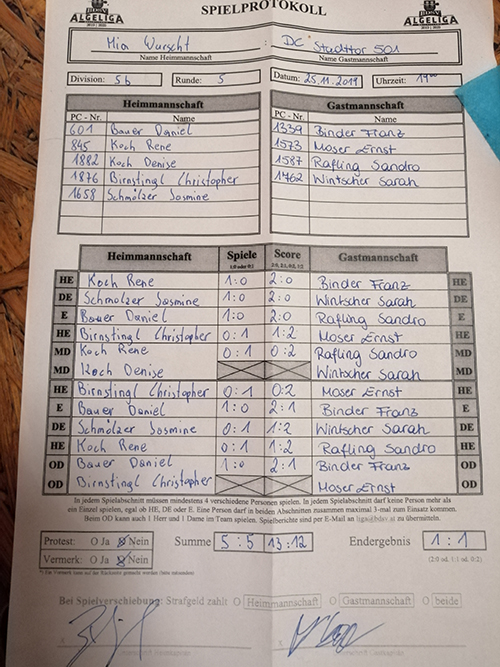 SPIELPROTOKOLL
ALGELIGA ALGELIGA
Mia Wurscht : DC Stadttor 501
Name Heimmannschaft Name Gastmannschaft
Division: 5b Runde: 5 Datum: 25.11.2019 Uhrzeit: 19⁰⁰
Heimmannschaft Gastmannschaft
PC - Nr. Name PC - Nr. Name
601 Bauer Daniel 1339 Binder Franz
845 Koch Rene 1573 Moser Ernst
1882 Koch Denise 1587 Rafling Sandro
1876 Birnstingl Christopher 1762 Wintscher Sarah
1658 Schmölzer Jasmine
Heimmannschaft Spiele Score Gastmannschaft
HE Koch Rene 1:0 2:0 Binder Franz HE
DE Schmölzer Jasmine 1:0 2:0 Wintscher Sarah DE
E Bauer Daniel 1:0 2:0 Rafling Sandro E
HE Birnstingl Christopher 0:1 1:2 Moser Ernst HE
MD Koch Rene 0:1 0:2 Rafling Sandro MD
MD Koch Denise Wintscher Sarah MD
HE Birnstingl Christopher 0:1 0:2 Moser Ernst HE
E Bauer Daniel 1:0 2:1 Binder Franz E
DE Schmölzer Jasmine 0:1 1:2 Wintscher Sarah DE
HE Koch Rene 0:1 1:2 Rafling Sandro HE
OD Bauer Daniel 1:0 2:1 Binder Franz OD
OD Birnstingl Christopher Moser Ernst OD
In jedem Spielabschnitt müssen mindestens 4 verschiedene Personen spielen. In jedem Spielabschnitt darf keine Person mehr als
ein Einzel spielen, egal ob HE, DE oder E. Eine Person darf in beiden Abschnitten zusammen maximal 3-mal zum Einsatz kommen.
Beim OD kann auch 1 Herr und 1 Dame im Team spielen. Spielberichte sind per E-Mail an zu übermitteln.
Protest: O Ja O Nein Summe 5:5 13:12 Endergebnis 1:1
Vermerk: O Ja O Nein (2:0 od. 1:1 od. 0:2)
Bei Spielverschiebung: Strafgeld zahlt O Heimmannschaft O Gastmannschaft O beide